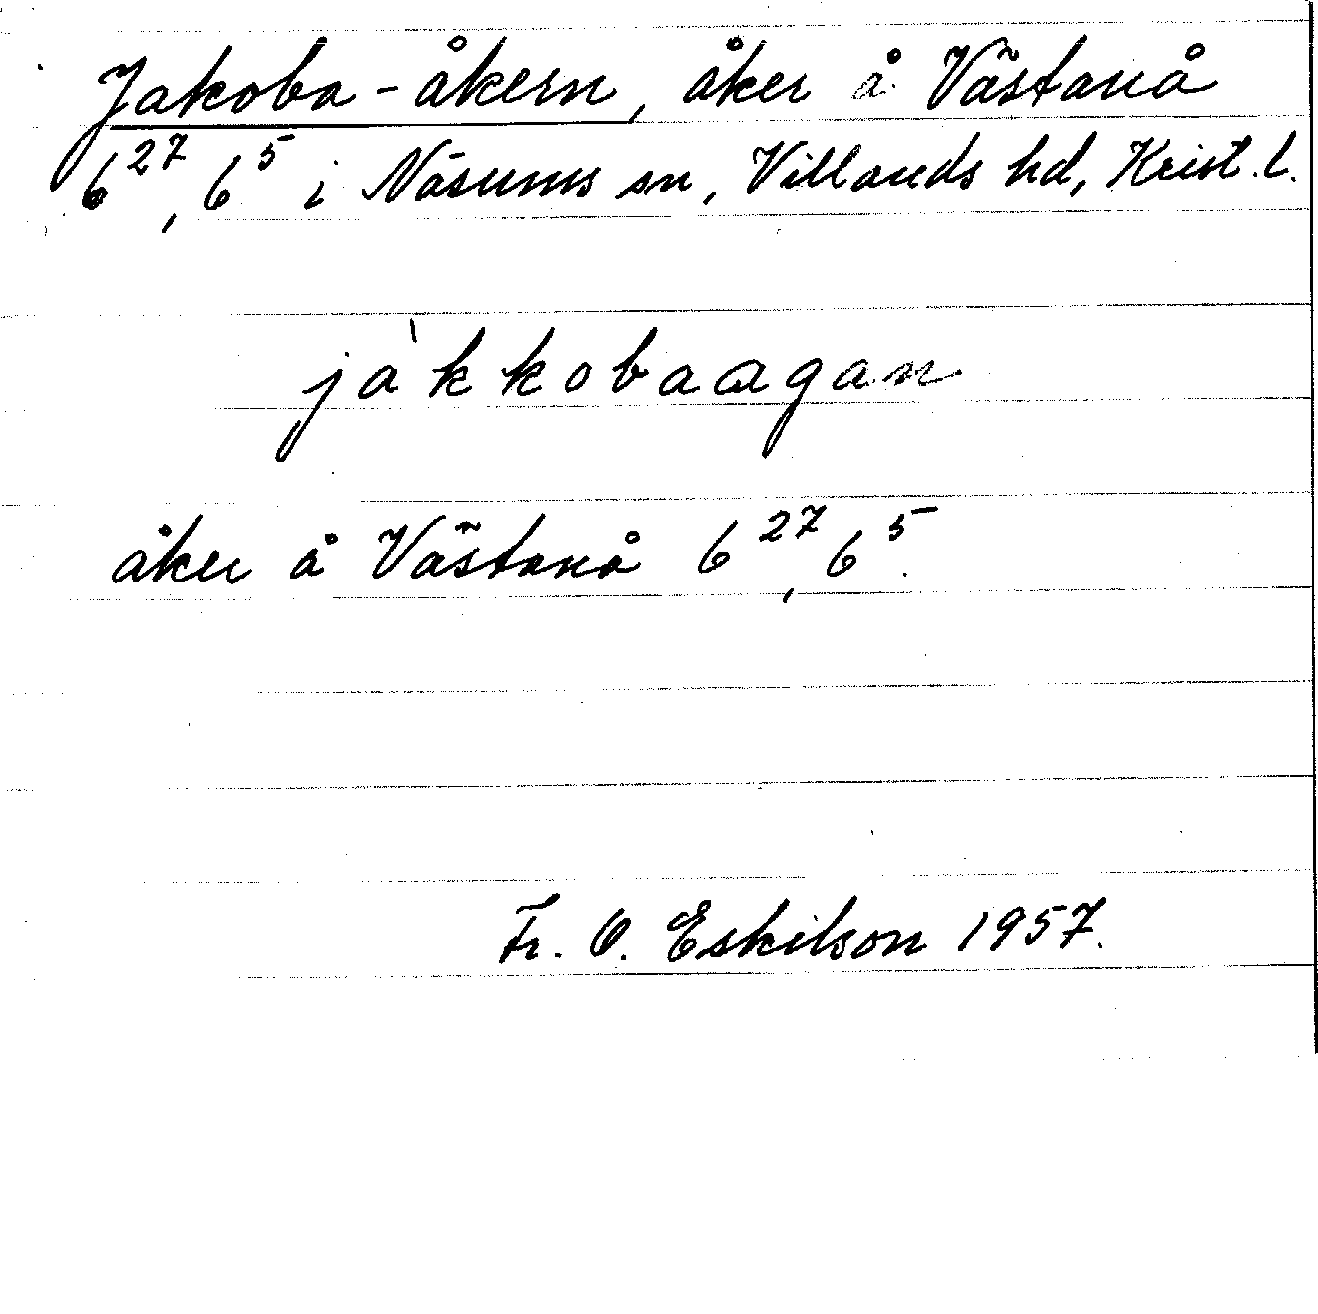 Jakoba-åkern, åker å Västanå
6²⁷, 6⁵ i Näsums sn, Villands hd, Krist. l.
jàkkobaagan
åker å Västanå 6²⁷, 6⁵.
Fr. O. Eskilson 1957.